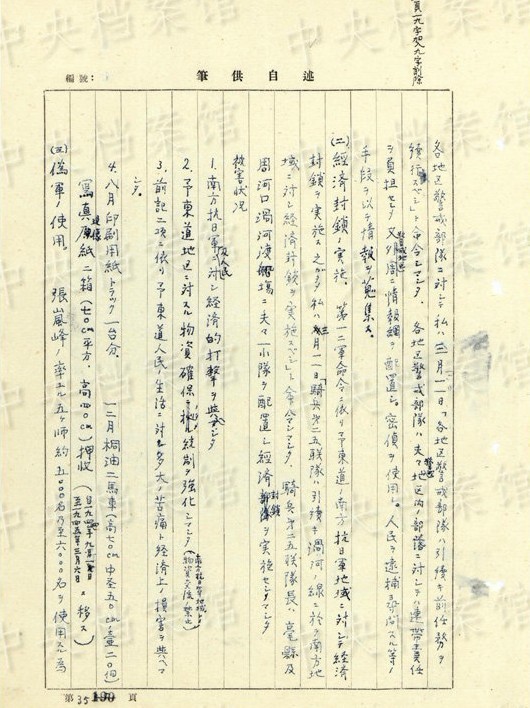 頁一九字加入九字削除
述自供筆
編號：
各地区警戒部隊ニ対シテ私ハ三月一一日「各地区警戒部隊ハ引続キ前任務ヲ
続行スベシ」ト命令シマシタ。各地区警戒部隊ハ夫々地区内ノ部落ニ対シテハ連帯責任
ヲ負担セシメ又外周ニ情報網ヲ配置シ。密偵ヲ使用シ。人民ヲ逮捕シ拷問スル等ノ
警戒地区
手段ヲ以テ情報ヲ蒐集ス。
(二)経済封鎖ノ実施。第一二軍命令ニ依リ予東道ノ南方抗日軍地域ニ対シテ経済
封鎖ヲ実施ス之ガタメ私ハ三月一一日「騎兵第二五联隊ハ引続キ渦河ノ線ニ於テ南方地
域ニ対シ経済封鎖ヲ実施スベシ」ト命令シマシタ。騎兵第二五联隊長ハ亳縣及
周河口渦河渡場ニ夫々一小隊ヲ配置シ経済封鎖ヲ実施セシメマシタ
被害状況
1. 南方抗日軍及人民ニ対シ経済的打撃ヲ与ヘマシタ
2. 予東道地区ニ対スル物資確保ノ統制ヲ強化シマシタ
3. 前記二項ニ依リ予東道人民ノ生活ニ対シ多大ノ苦痛ト経済上ノ損害ヲ与ヘマ
シタ。
4. 八月印刷用紙トラック一台分、一二月桐油二馬車(高七〇cm中至五〇cm壷二〇個)
写真原紙二箱(七〇cm平方、高四〇cm)押收
至一九四五年三月六日
(三)偽軍ノ使用。張嵐峰ノ率ユル五ヶ師約五〇〇〇名乃至六〇〇〇名ヲ使用スル為
第35頁